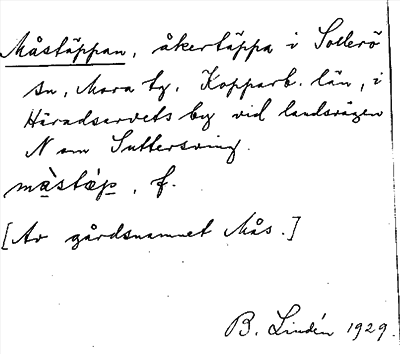 Måstäppan, åkertäppa i Sollerö
sn, Mora tg. Kopparb. län, i
Häradsarvets by vid landsvägen
N om Suttersving.
màstæ̀p, f.
[Av gårdsnamnet Mås.]
B. Lindén 1929.